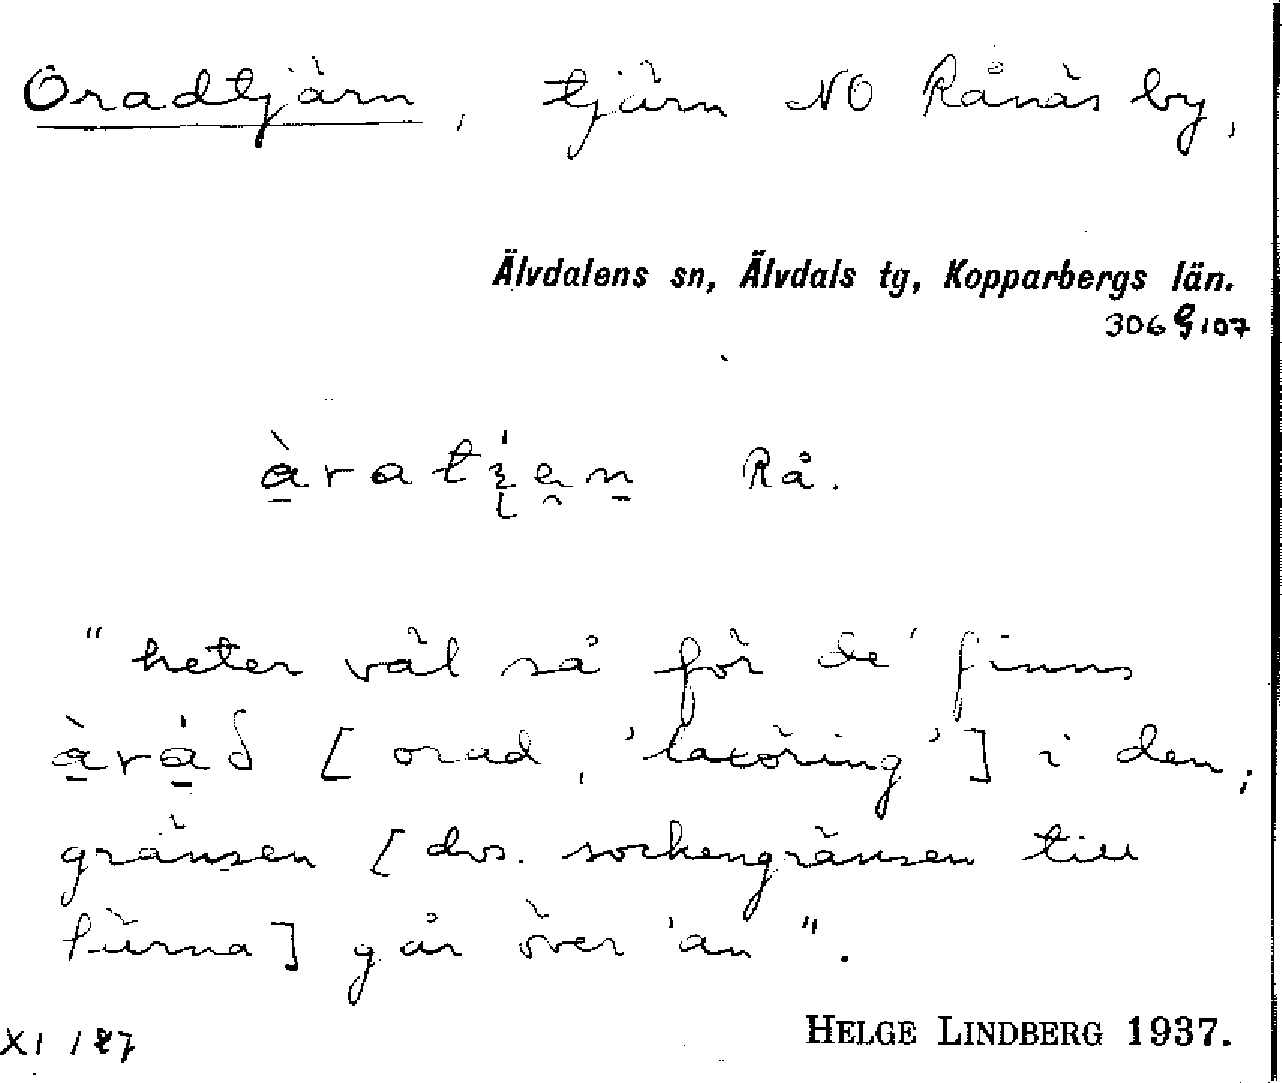 Oradtjärn, tjärn NO Rånäs by,
Älvdalens sn, Älvdals tg, Kopparbergs län.
306 g 107
Rå.
"heter väl så för de' finns
[orad, 'laxöring'] i den,
gränsen [dvs. sockengränsen till
går över 'an".
XI /
HELGE LINDBERG 1937.